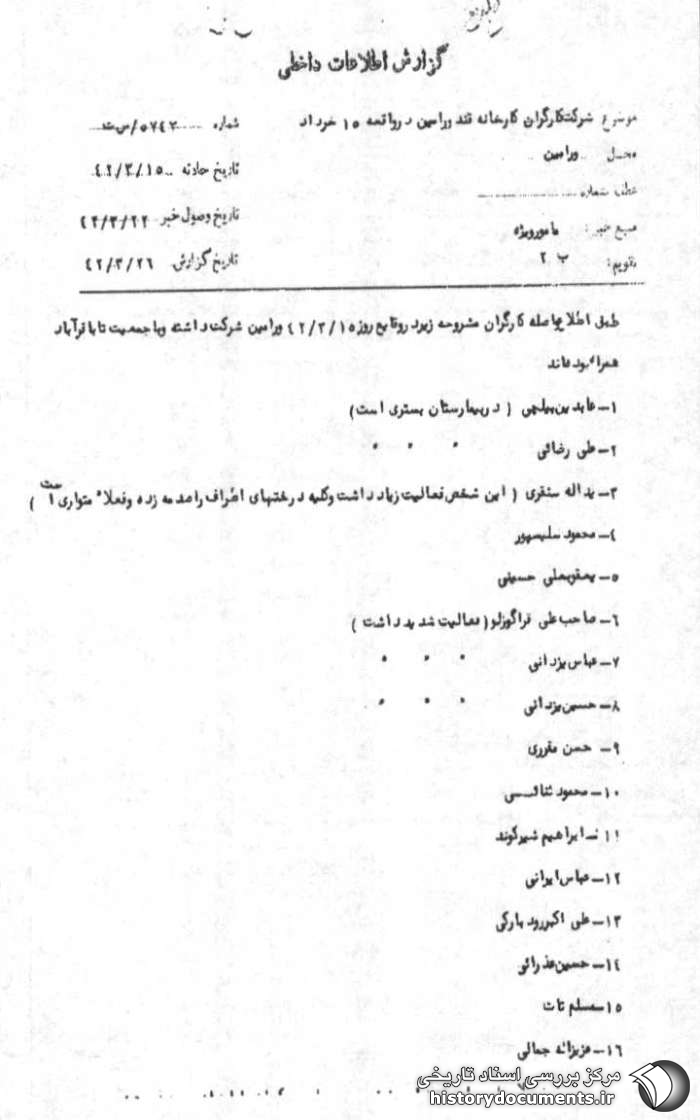 گزارش اطلاعات داخلی
موضوع شرکت کارگران کارخانه قند ورامین در واقعه ۱۵ خرداد
شماره ۵۷۴۲/س ت
محل ورامین
تاریخ حادثه ۴۲/۳/۱۵
عطف بشماره
تاریخ وصول خبر ۴۲/۳/۲۲
منبع خبر: مامور ویژه
تاریخ گزارش ۴۲/۳/۲۶
تقویم: ب ۲
طبق اطلاع واصله کارگران مشروحه زیر در وقایع روز ۴۲/۳/۱۵ ورامین شرکت داشته و با جمعیت تا باقرآباد
همراه بوده‌اند
۱ـ عابدین بیلچی ( در بیمارستان بستری است)
۲ـ علی رضائی " " "
۳ـ یداله سنقری ( این شخص فعالیت زیاد داشت وکلیه درختهای اطراف را صدمه زده وفعلاً متواری است )
۴ـ محمود سلیمپور
۵ـ یعقوبعلی حسینی
۶ـ صاحب علی قراگوزلو( فعالیت شدید داشت )
۷ـ عباس یزدانی " " "
۸ـ حسین یزدانی " " "
۹ـ حسن مقرری
۱۰ـ محمود ثنائی
۱۱ـ ابراهیم شیرکوند
۱۲ـ عباس ایرانی
۱۳ـ علی اکبر رودبارکی
۱۴ـ حسین عذرائی
۱۵ـ مسلم تات
۱۶ـ عزیزاله جمالی
مرکز بررسی اسناد تاریخی
historydocuments.ir